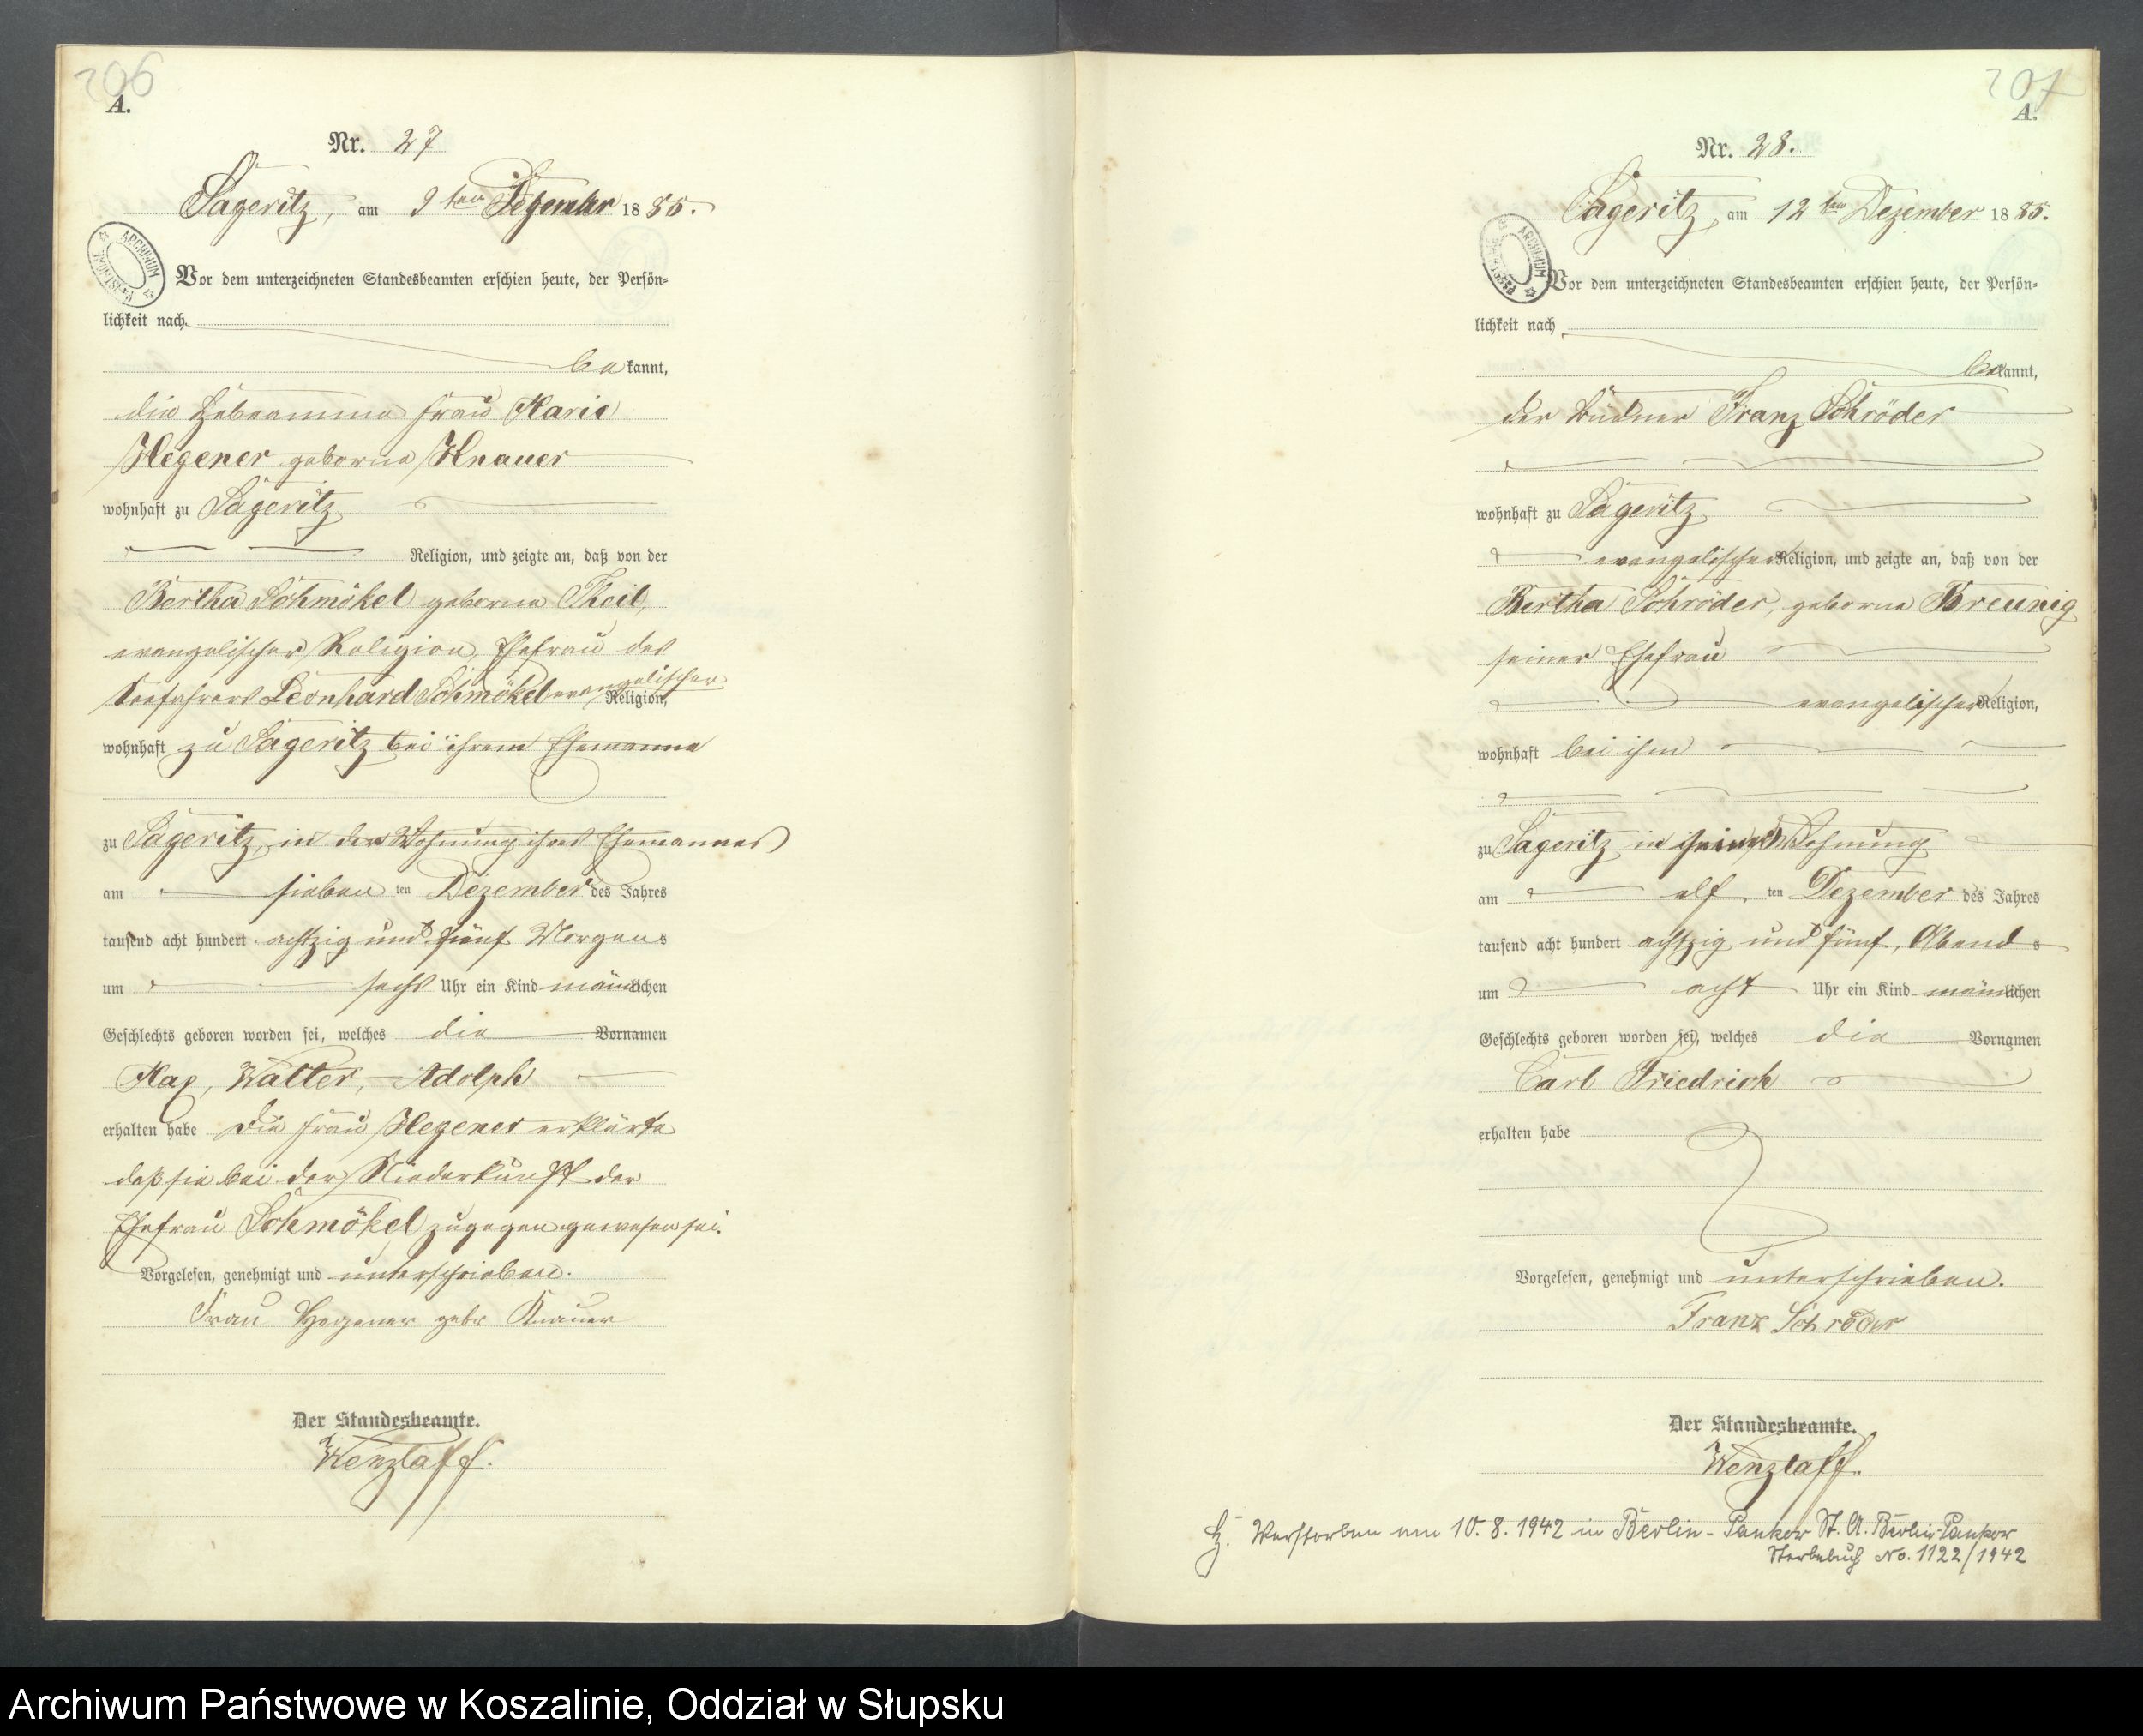 206
A.
Nr. 27
Sageritz, am 9ten Dezember 1885.
ARCHIWUM
Vor dem unterzeichneten Standesbeamten erschien heute, der Persön-
lichkeit nach
bekannt,
die Hebeamme Frau Marie
Hegener geborne Knauer
wohnhaft zu Sageritz
Religion, und zeigte an, daß von der
Bertha Schmökel geborne Theil,
evangelischer Religion, Ehefrau des
Seefahrers Leonhard Schmökel evangelischer Religion,
wohnhaft zu Sageritz bei ihrem Ehemanne
zu Sageritz in der Wohnung ihres Ehemannes
am sieben ten Dezember des Jahres
tausend acht hundert achtzig und fünf Morgens
um sechs Uhr ein Kind männlichen
Geschlechts geboren worden sei, welches die Vornamen
Max, Walter, Adolph
erhalten habe Die Frau Hegener erklärte
daß sie bei der Niederkunft der
Ehefrau Schmökel zugegen gewesen sei.
Vorgelesen, genehmigt und unterschrieben.
Frau Hegener gebr Knauer
Der Standesbeamte.
Wenzlaff.
207
A.
Nr. 28.
Sageritz, am 12ten Dezember 1885.
ARCHIWUM
Vor dem unterzeichneten Standesbeamten erschien heute, der Persön-
lichkeit nach
bekannt,
der Büdner Franz Schröder
wohnhaft zu Sageritz
evangelischer Religion, und zeigte an, daß von der
Bertha Schröder, geborne Breunig
seiner Ehefrau
evangelischer Religion,
wohnhaft bei ihm
zu Sageritz in seiner Wohnung
am elf ten Dezember des Jahres
tausend acht hundert achtzig und fünf, Abends
um acht Uhr ein Kind männlichen
Geschlechts geboren worden sei, welches die Vornamen
Carl Friedrich
erhalten habe
Vorgelesen, genehmigt und unterschrieben.
Franz Schröder
Der Standesbeamte.
Wenzlaff.
Verstorben am 10.8.1942 in Berlin-Pankow St. A. Berlin-Pankow
Sterbebuch No. 1122/1942
Archiwum Państwowe w Koszalinie, Oddział w Słupsku